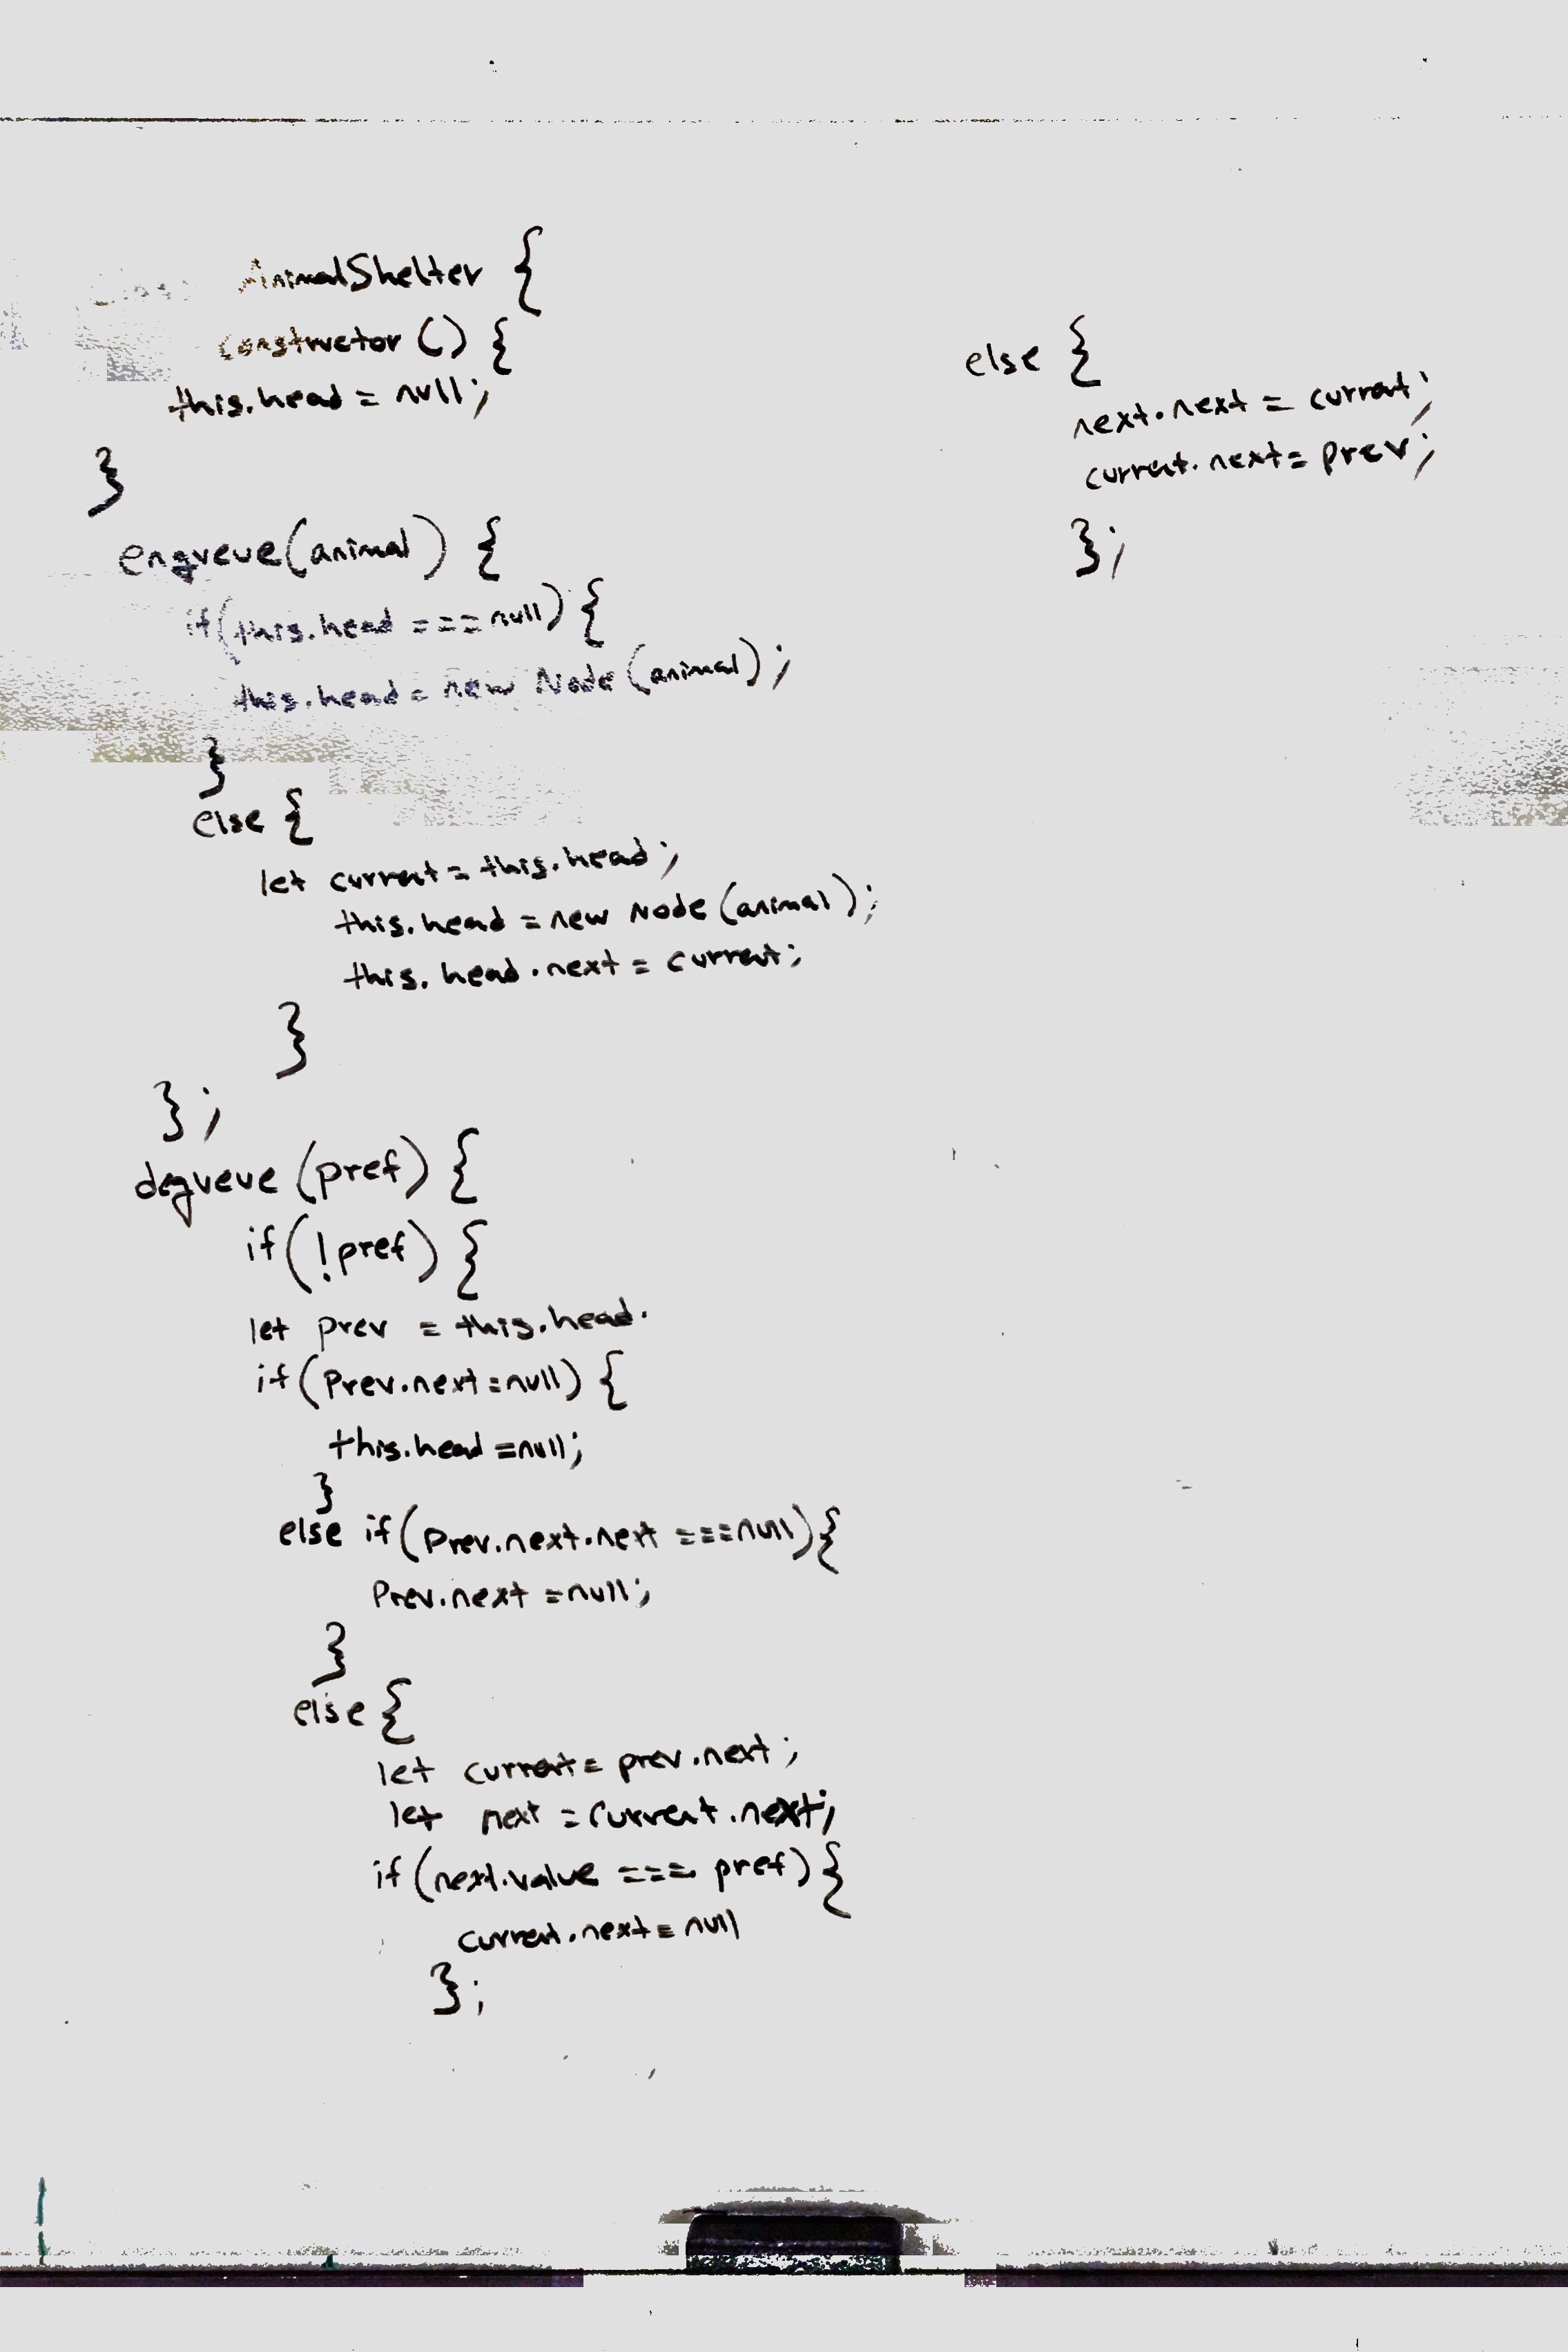 AnimalShelter {
constructor () {
this.head = null;
}
enqueue(animal) {
if(this.head === null) {
this.head = new Node (animal);
}
else {
let current = this.head;
this.head = new Node (animal);
this.head.next = current;
}
};
dequeue (pref) {
if(!pref) {
let prev = this.head.
if(Prev.next=null) {
this.head =null;
}
else if(Prev.next.next ===null){
Prev.next =null;
}
else {
let current = prev.next;
let next = current.next;
if (next.value === pref) {
current.next = null
};
else {
next.next = current;
current.next = prev;
};